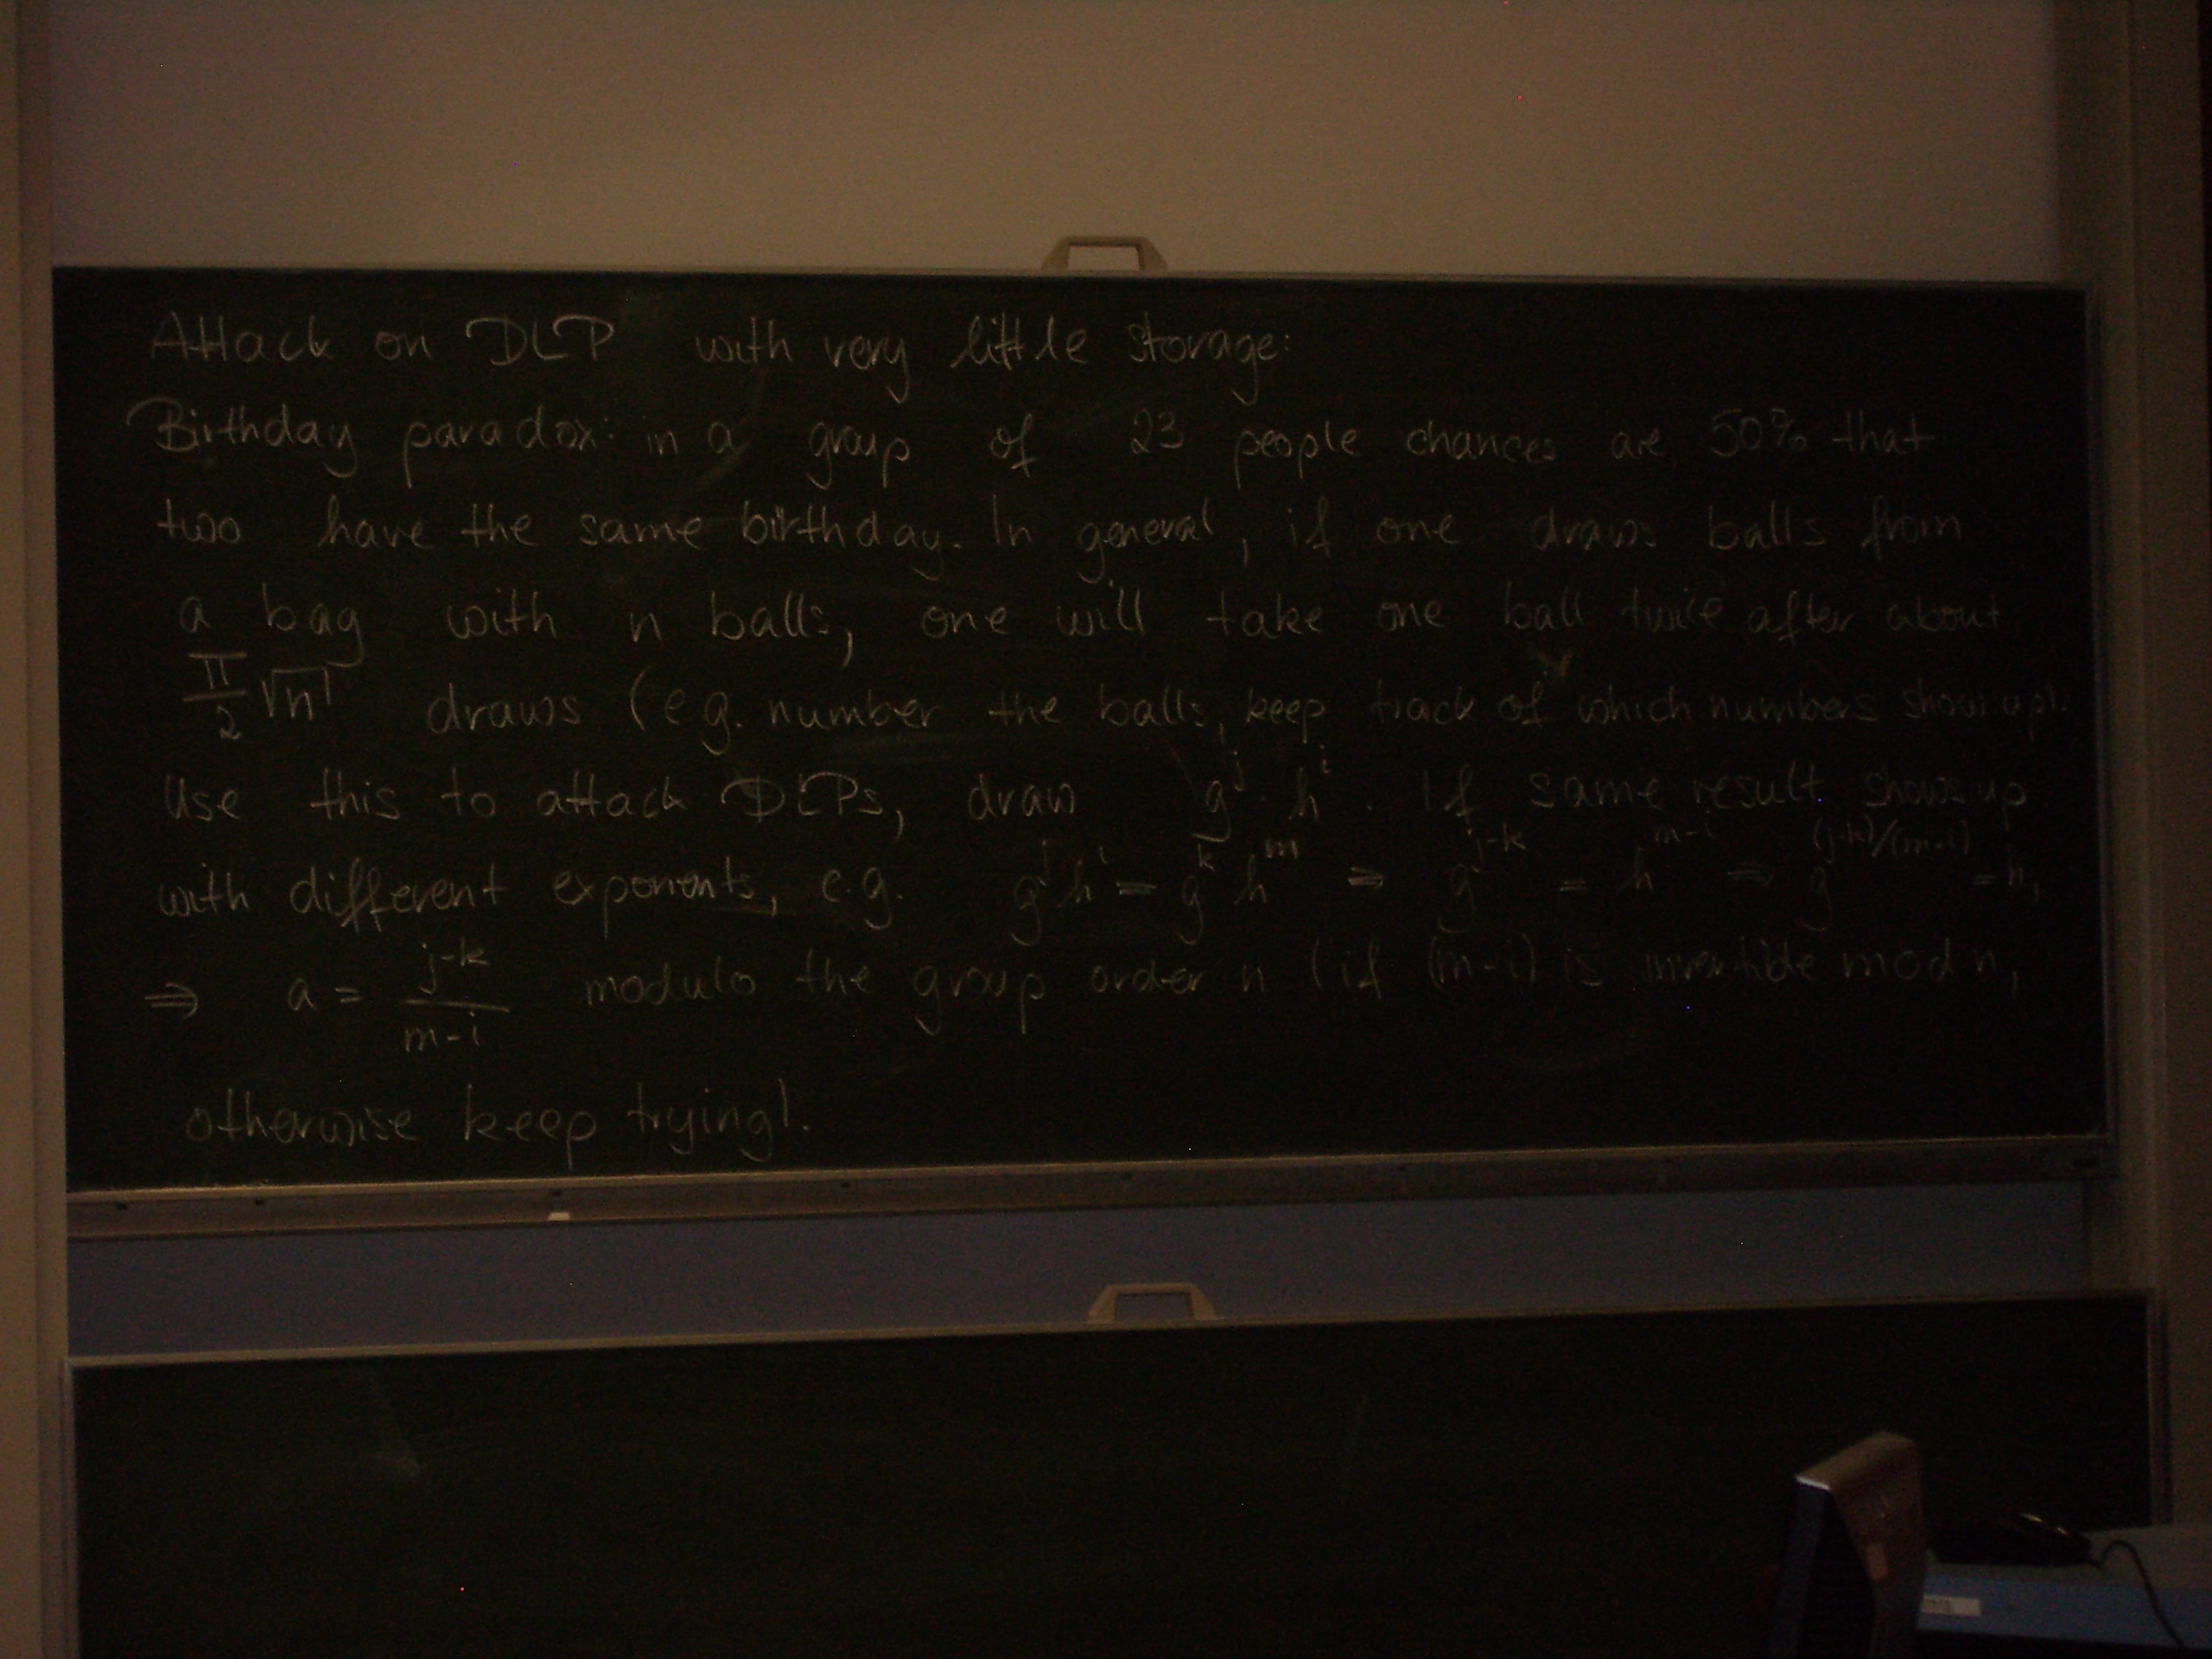 Attack on DLP with very little storage:
Birthday paradox: in a group of 23 people chances are 50% that
two have the same birthday. In general, if one draws balls from
a bag with n balls, one will take one ball twice after about
π/2 √n draws (e.g. number the balls, keep track of which numbers show up).
Use this to attack DLPs, draw g^j · h^i. If same result shows up
with different exponents, e.g. g^j h^i = g^k h^m ⇒ g^(j-k) = h^(m-i) ⇒ g^((j-k)/(m-i)) = h,
⇒ a = (j-k)/(m-i) modulo the group order n (if (m-i) is invertible mod n,
otherwise keep trying).